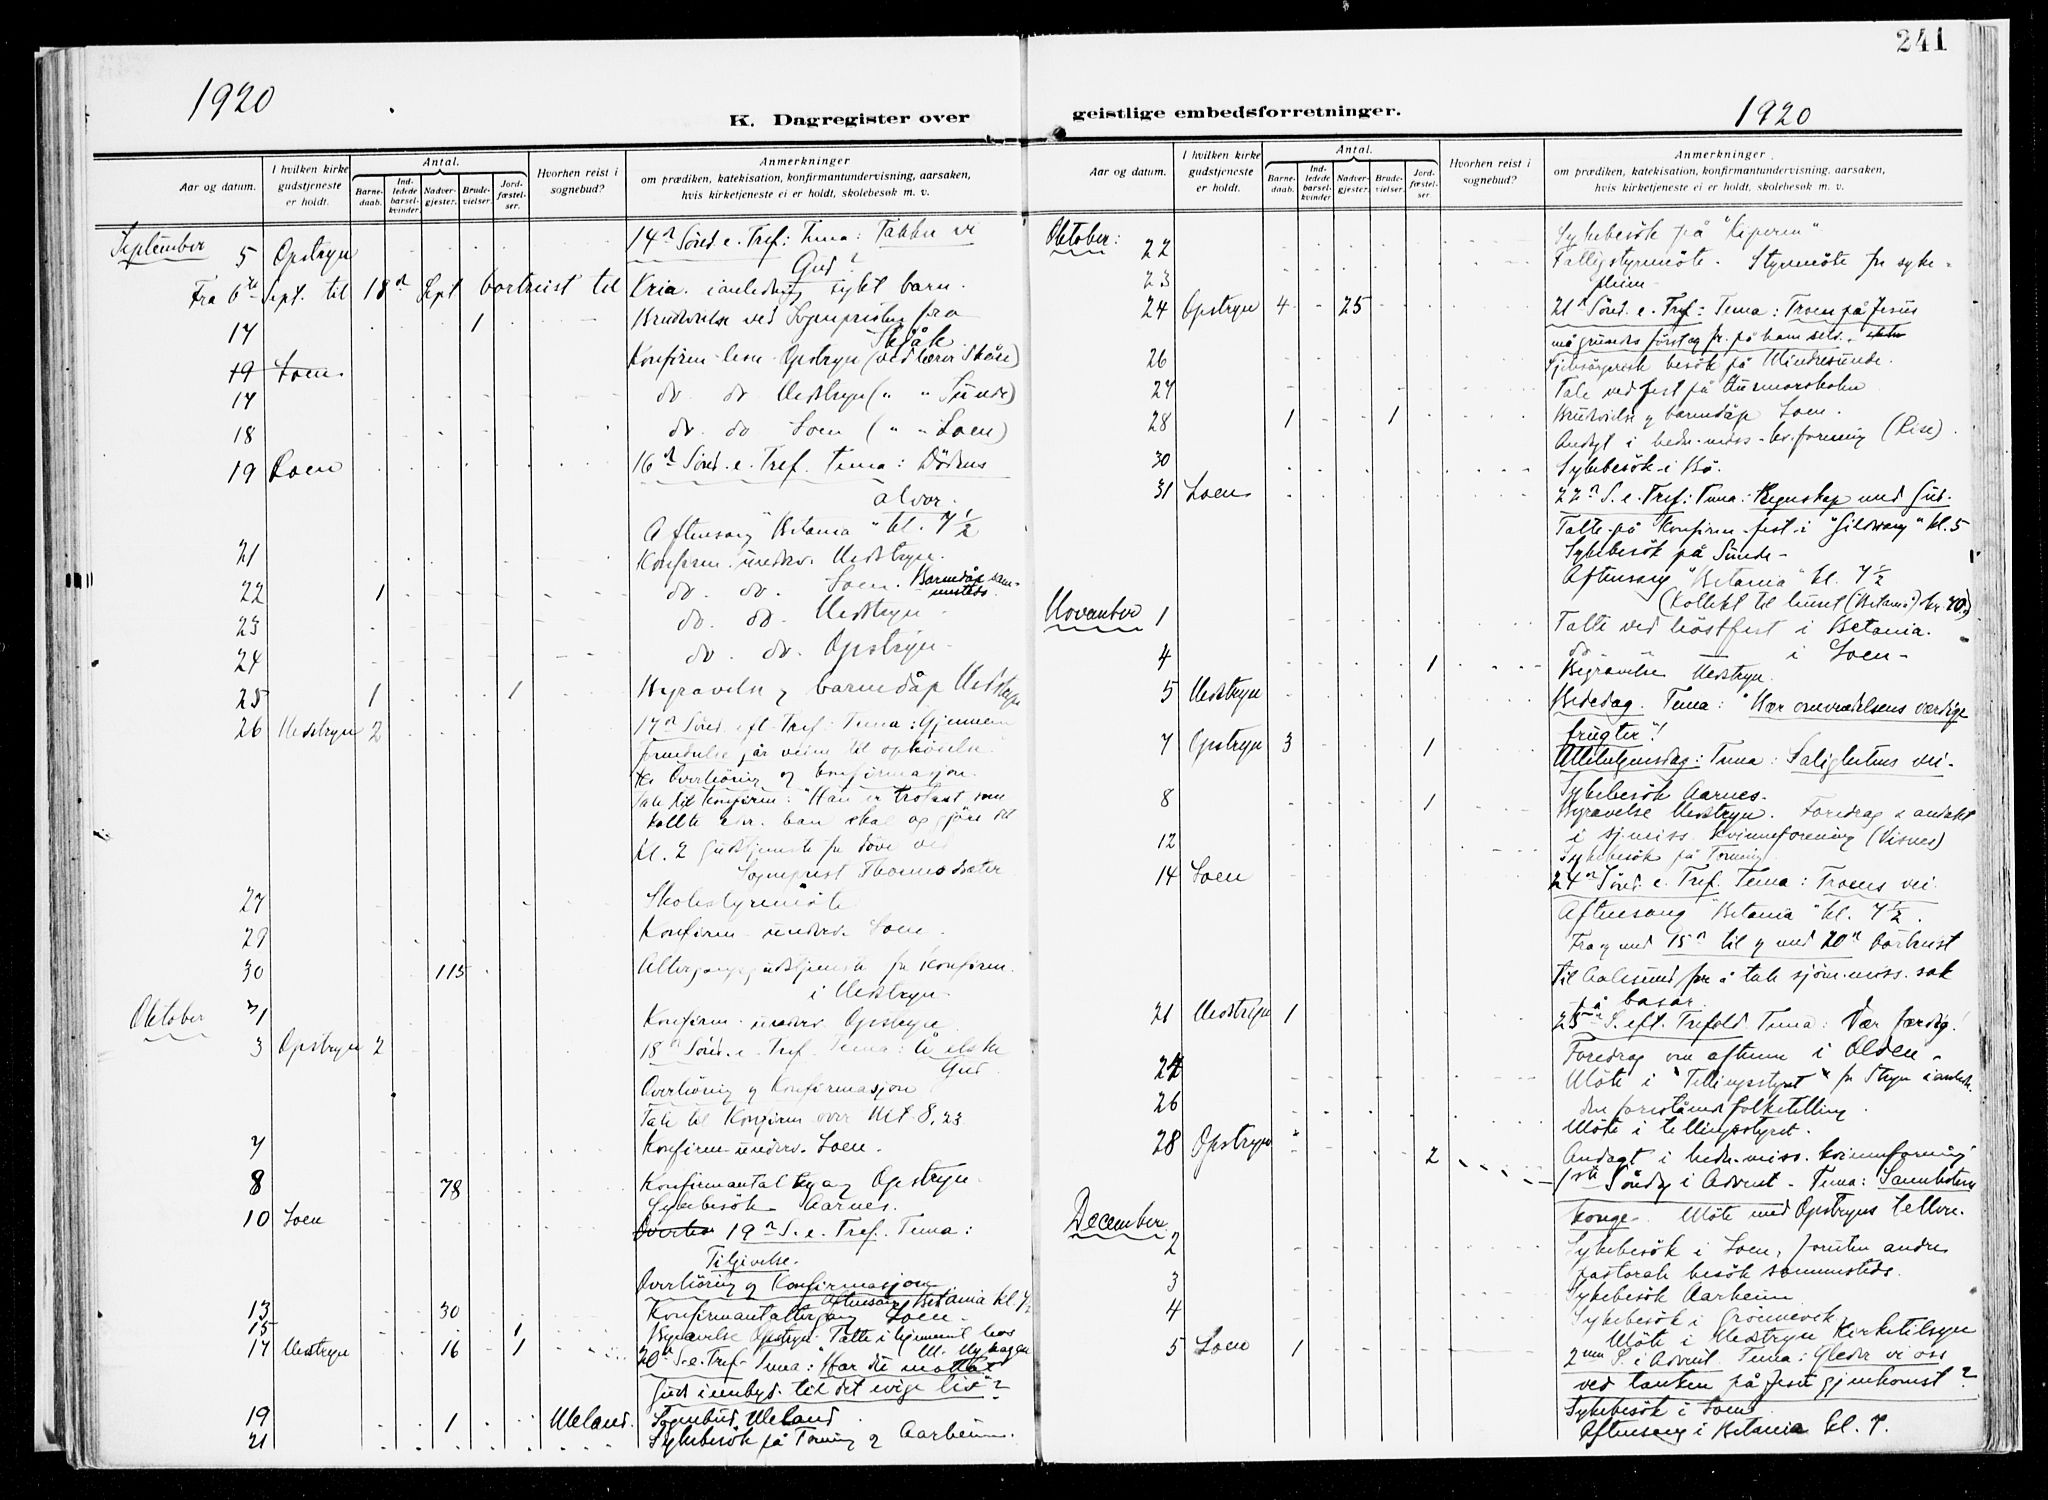 241
1920
K. Dagregister over
Aar og datum.
I hvilken kirke gudstjeneste er holdt.
Antal.
Barne-daab.
Ind-ledede barsel-kvinder.
Nadver-gjester.
Brude-vielser.
Jord-fæstel-ser.
Hvorhen reist i sognebud?
Anmerkninger
om prædiken, katekisation, konfirmantundervisning, aarsaken,
hvis kirketjeneste ei er holdt, skolebesøk m. v.
September 5 Opstryn 14de Sønd. e. Tref: Tema: Takker vi
Gud?
Fra 6te Sept. til 18de Sept bortreist til Kria. i anledning sykt barn.
17 1 Brudvielse ved Sogneprsten fra
Skjåk
19 Loen Konfirm-lesn. Opstryn (ved lærer Skåre)
17 do. do Nedstryn (" " Sunde)
18 do. do Loen (" " Loen)
19 Loen 16de Sønd. e. Tref. Tema: Dødens
alvor.
Aftensang "Betania" kl. 7 1/2
21 Konfirm. underv. Nedstryn.
22 1 do. do. Loen. Barnedåp sam-
mesteds.
23 do. do. Nedstryn
24 do. do. Opstryn
25 1 1 Begravelse og barnedåp Nedstryn
26 Nedstryn 2 17de Sønd. eft. Tref: Tema: Gjennem
fornedrelse går veien til ophøielse.
Overhøring og konfirmasjon.
Tale til konfirm: "Han er trofast som
kaldte eder. han skal og gjøre det
Kl. 2 Gudstjeneste for døve ved
Sogneprest
27 Skolestyremøte
29 Konfirm underv. Loen.
30 115 Altergangsgudstjeneste for Konfirm.
i Nedstryn.
Oktober 1 Konfirm-underv. Opstryn
3 Opstryn 2 18de Sønd. e. Tref. Tema: Å elske
Gud.
Overhøring og Konfirmasjon
Tale til Konfirm over Mt 8,23
7 Konfirm-underv. Loen.
8 78 Konfirmantaltergang Opstryn.
Sykebesøk Aarnes.
10 Loen 19de S. e. Tref. Tema:
Tilgivelse.
Overhøring og Konfirmasjon
Aftensang Betania kl. 7 1/2
13 30 Konfirmantaltergang Loen.
15 1 Begravelse Opstryn. Talte i hjemmet hos
M. Myhagen
17 Nedstryn 16 1 20de S. e. Tref. Tema: "Har du mottat
Guds innbyd. til det evige liv"?
19 1 Meland. Sognebud Meland
21 Sykebesøk på Tonning og Aarheim.
geistlige embedsforretninger.
1920
Aar og datum.
I hvilken kirke gudstjeneste er holdt.
Antal.
Barne-daab.
Ind-ledede barsel-kvinder
Nadver-gjester.
Brude-vielser.
Jord-fæstel-ser.
Hvorhen reist i sognebud?
Anmerkninger
om prædiken, katekisation, konfirmantundervisning, aarsaken,
hvis kirketjeneste ei er holdt, skolebesøk m. v.
Oktober: 22 Sykebesøk på
23 Fattigstyremøte. Styremøte for syke-
pleien
24 Opstryn 4 25 21de Sønd. e. Tref: Tema: Troen på Jesus
må grundes først og fr. på hans
26 Sjelesørgerisk besøk på Mindresunde.
27 Tale ved fest på
28 1 1 Brudvielse og barnedåp Loen.
Andagt i hedn-miss-kv.forening (Rise).
30 Sykebesøk i Bø.
31 Loen 22de S. e. Tref: Tema: Regnskap med Gud.
Talte på Konfirm-fest i kl. 5
Sykebesøk på Sunde.
Aftensang "Betania" kl. 7 1/2
(Kollekt til huset (Betania) kr. 70.)
November 1 Talte ved høstfest i Betania.
do i Loen.
4 1 Begravelse Nedstryn.
5 Nedstryn Bededag. Tema: "Bær omvendelsens værdige
frugter"!
7 Opstryn 3 1 Allehelgensdag: Tema: Salighetens vei.
Sykebesøk Aarnes.
8 1 Begravelse Nedstryn. Foredrag & andakt
i sjømiss. kvinneforening (Visnes)
12 Sykebesøk på Tonning.
14 Loen 24de Sønd. e. Tref. Tema: Troens vei.
Aftensang "Betania" kl. 7 1/2.
Fra og med 15de til og med 20de bortreist
til Aalesund for å tale sjøm.miss. sak
på basar.
21 Nedstryn 1 25de S. eft. Trefold. Tema: Vær færdig!
Foredrag om aftenen i Olden.
24 Møte i "Tellingsstyret" for Stryn i anled.
26 den forestående folketelling.
Møte i tellingsstyret.
28 Opstryn " 2 Andagt i hedn-miss. kvinneforening
1ste Søndag i Advent. Tema: Sannhetens
konge. Møte med Opstryns tellere.
December 2 Sykebesøk i Loen, foruten andre
pastorale besøk sammesteds.
3 Sykebesøk Aarheim
4 Sykebesøk i Grønnevik.
Møte i Nedstryn Kirketilsyn
5 Loen 1 2nen S. i Advent. Tema: Gleder vi oss
ved tanken på Jesu gjenkomst?
Sykebesøk i Loen
Aftensang i Betania kl. 7.